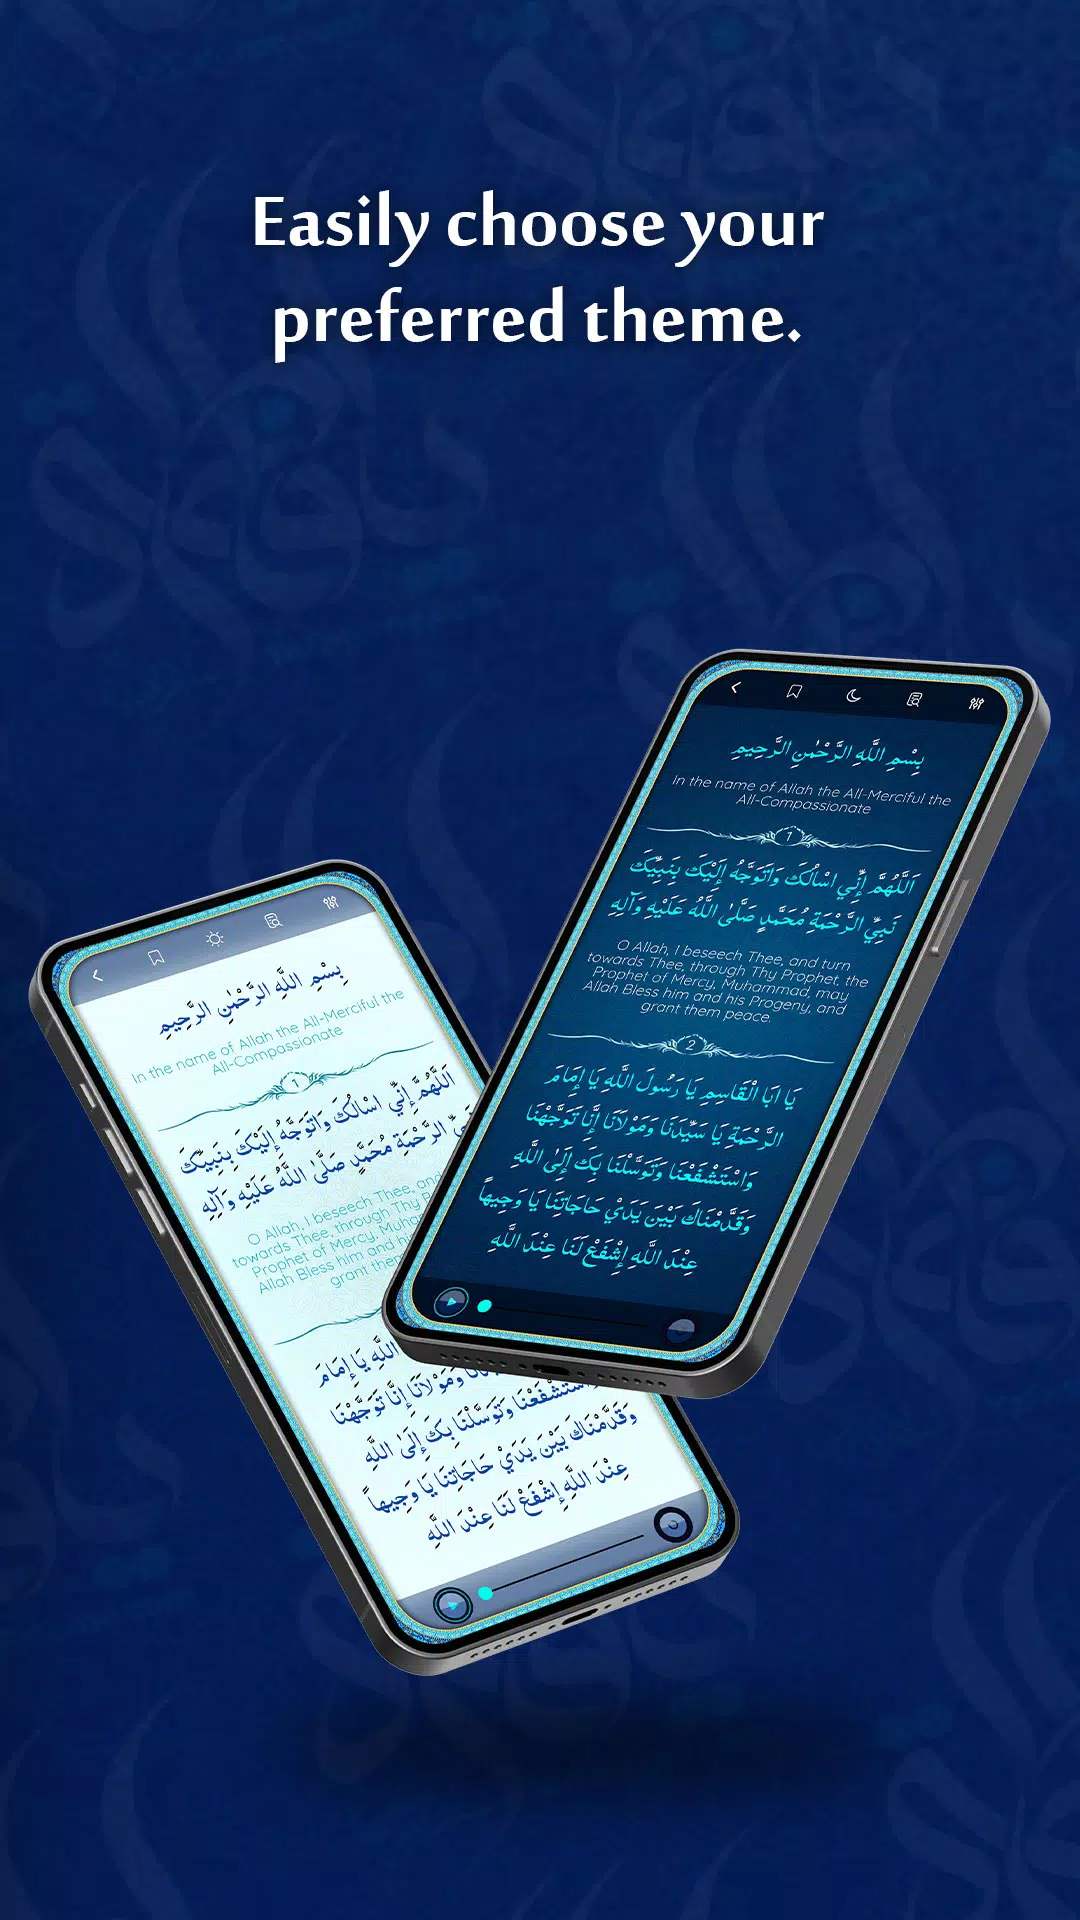 Easily choose your
preferred theme.
بِسْمِ اللَّهِ الرَّحْمٰنِ الرَّحِيمِ
In the name of Allah the All-Merciful the
All-Compassionate
1
اَللَّهُمَّ إِنِّي اسْاَلُكَ وَاَتَوَجَّهُ إِلَيْكَ بِنَبِيِّكَ
نَبِيِّ الرَّحْمَةِ مُحَمَّدٍ صَلَّىٰ اللَّهُ عَلَيْهِ وَآلِهِ
O Allah, I beseech Thee, and turn
towards Thee, through Thy Prophet, the
Prophet of Mercy, Muhammad, may
Allah Bless him and his Progeny, and
grant them peace.
2
يَا ابَا الْقَاسِمِ يَا رَسُولَ اللَّهِ يَا إِمَامَ
الرَّحْمَةِ يَا سَيِّدَنَا وَمَوْلَانَا إِنَّا تَوَجَّهْنَا
وَاسْتَشْفَعْنَا وَتَوَسَّلْنَا بِكَ إِلَىٰ اللَّهِ
وَقَدَّمْنَاكَ بَيْنَ يَدَيْ حَاجَاتِنَا يَا وَجِيهاً
عِنْدَ اللَّهِ إِشْفَعْ لَنَا عِنْدَ اللَّهِ
بِسْمِ اللَّهِ الرَّحْمٰنِ الرَّحِيمِ
In the name of Allah the All-Merciful the
All-Compassionate
1
اَللَّهُمَّ إِنِّي اسْاَلُكَ وَاَتَوَجَّهُ إِلَيْكَ بِنَبِيِّكَ
الرَّحْمَةِ مُحَمَّدٍ صَلَّىٰ اللَّهُ عَلَيْهِ وَآلِهِ
O Allah, I beseech Thee, and
towards Thee, through Thy
Prophet of Mercy,
Allah Bless him and
grant
اللَّهِ يَا إِمَامَ
وَمَوْلَانَا إِنَّا تَوَجَّهْنَا
وَتَوَسَّلْنَا بِكَ إِلَىٰ اللَّهِ
وَقَدَّمْنَاكَ بَيْنَ يَدَيْ حَاجَاتِنَا يَا وَجِيهاً
عِنْدَ اللَّهِ إِشْفَعْ لَنَا عِنْدَ اللَّهِ